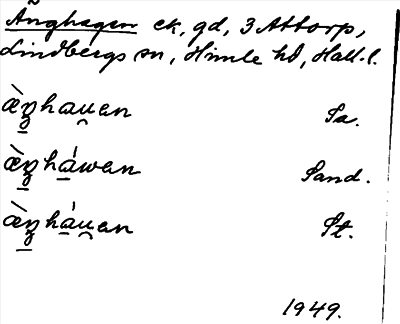 Änghagen ek, gd, 3 Attorp,
Lindbergs sn, Himle hd, Hall. l.
æ̀ŋhau̯an Sa.
æ̀ŋháwan Sand.
æ̀ŋháu̯an St.
1949.